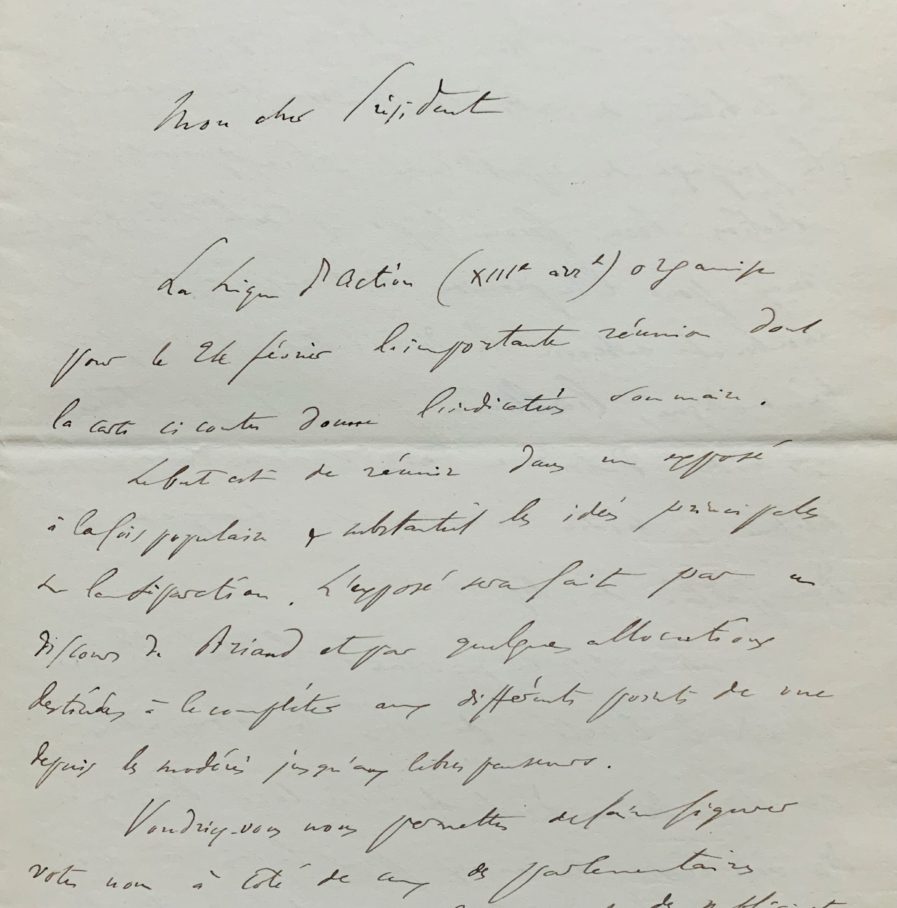 Mon cher Président
La Ligue d'Action (XIIIe arrt) organise
pour le 24 février l'importante réunion dont
la carte ci contre donne l'indication sommaire.
Le but est de réunir dans un exposé
à la fois populaire & substantiel les idées principales
sur la séparation. L'exposé sera fait par un
discours de Briand et par quelques allocutions
destinées à le compléter aux différents points de vue
depuis les modérés jusqu'aux libres penseurs.
Voudriez-vous nous permettre de faire figurer
votre nom à côté de ceux des parlementaires
de